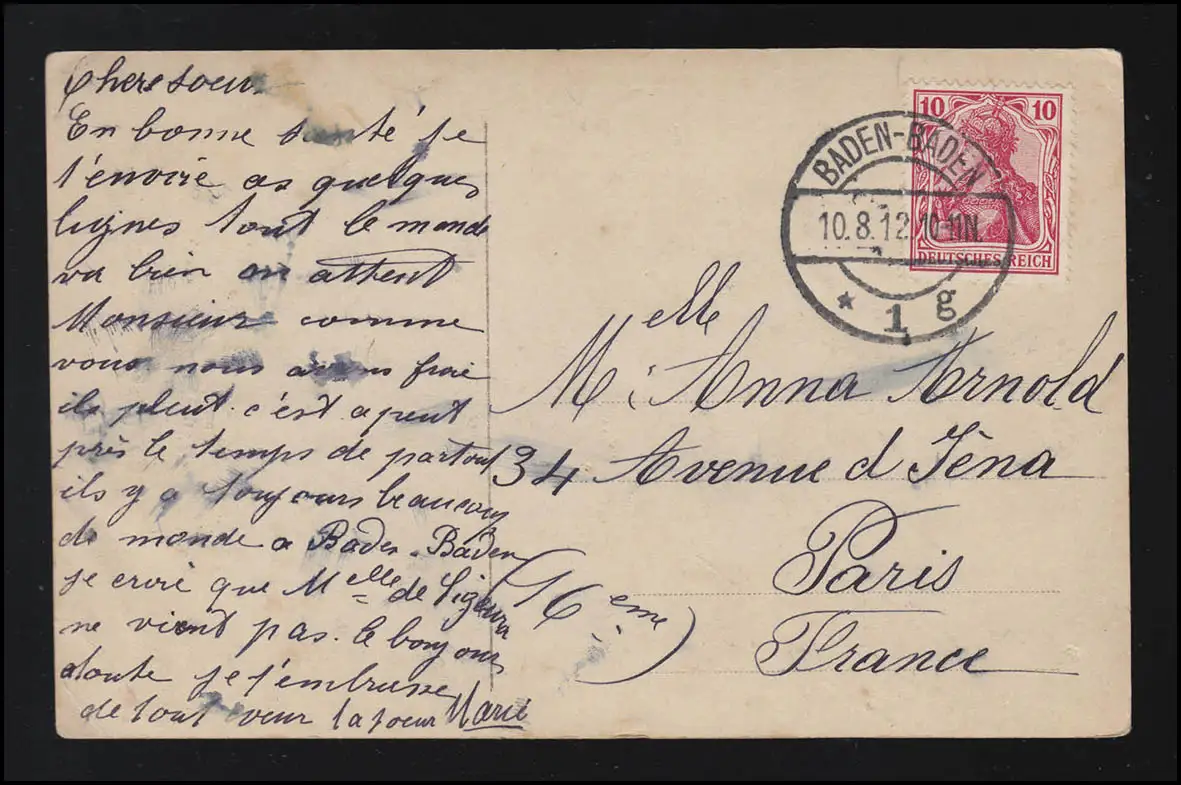 Chere soeur
En bonne santé je
t'envoie as quelques
lignes tout le monde
va bien on attent
Monsieur comme
vous nous avons froi
ils pleut. c'est a peut
près le temps de partout
ils y a toujours beaucoup
de monde a Baden-Baden
je croie que Melle de
ne vient pas. le bonjour
atoute je t'embrasse
de tout coeur ta soeur Marie
10 10
DEUTSCHES REICH
BADEN-BADEN
10.8.12 10-11N.
* 1 g
Melle Anna Arnold
34 Avenue d Iéna
Paris
(16 eme)
France